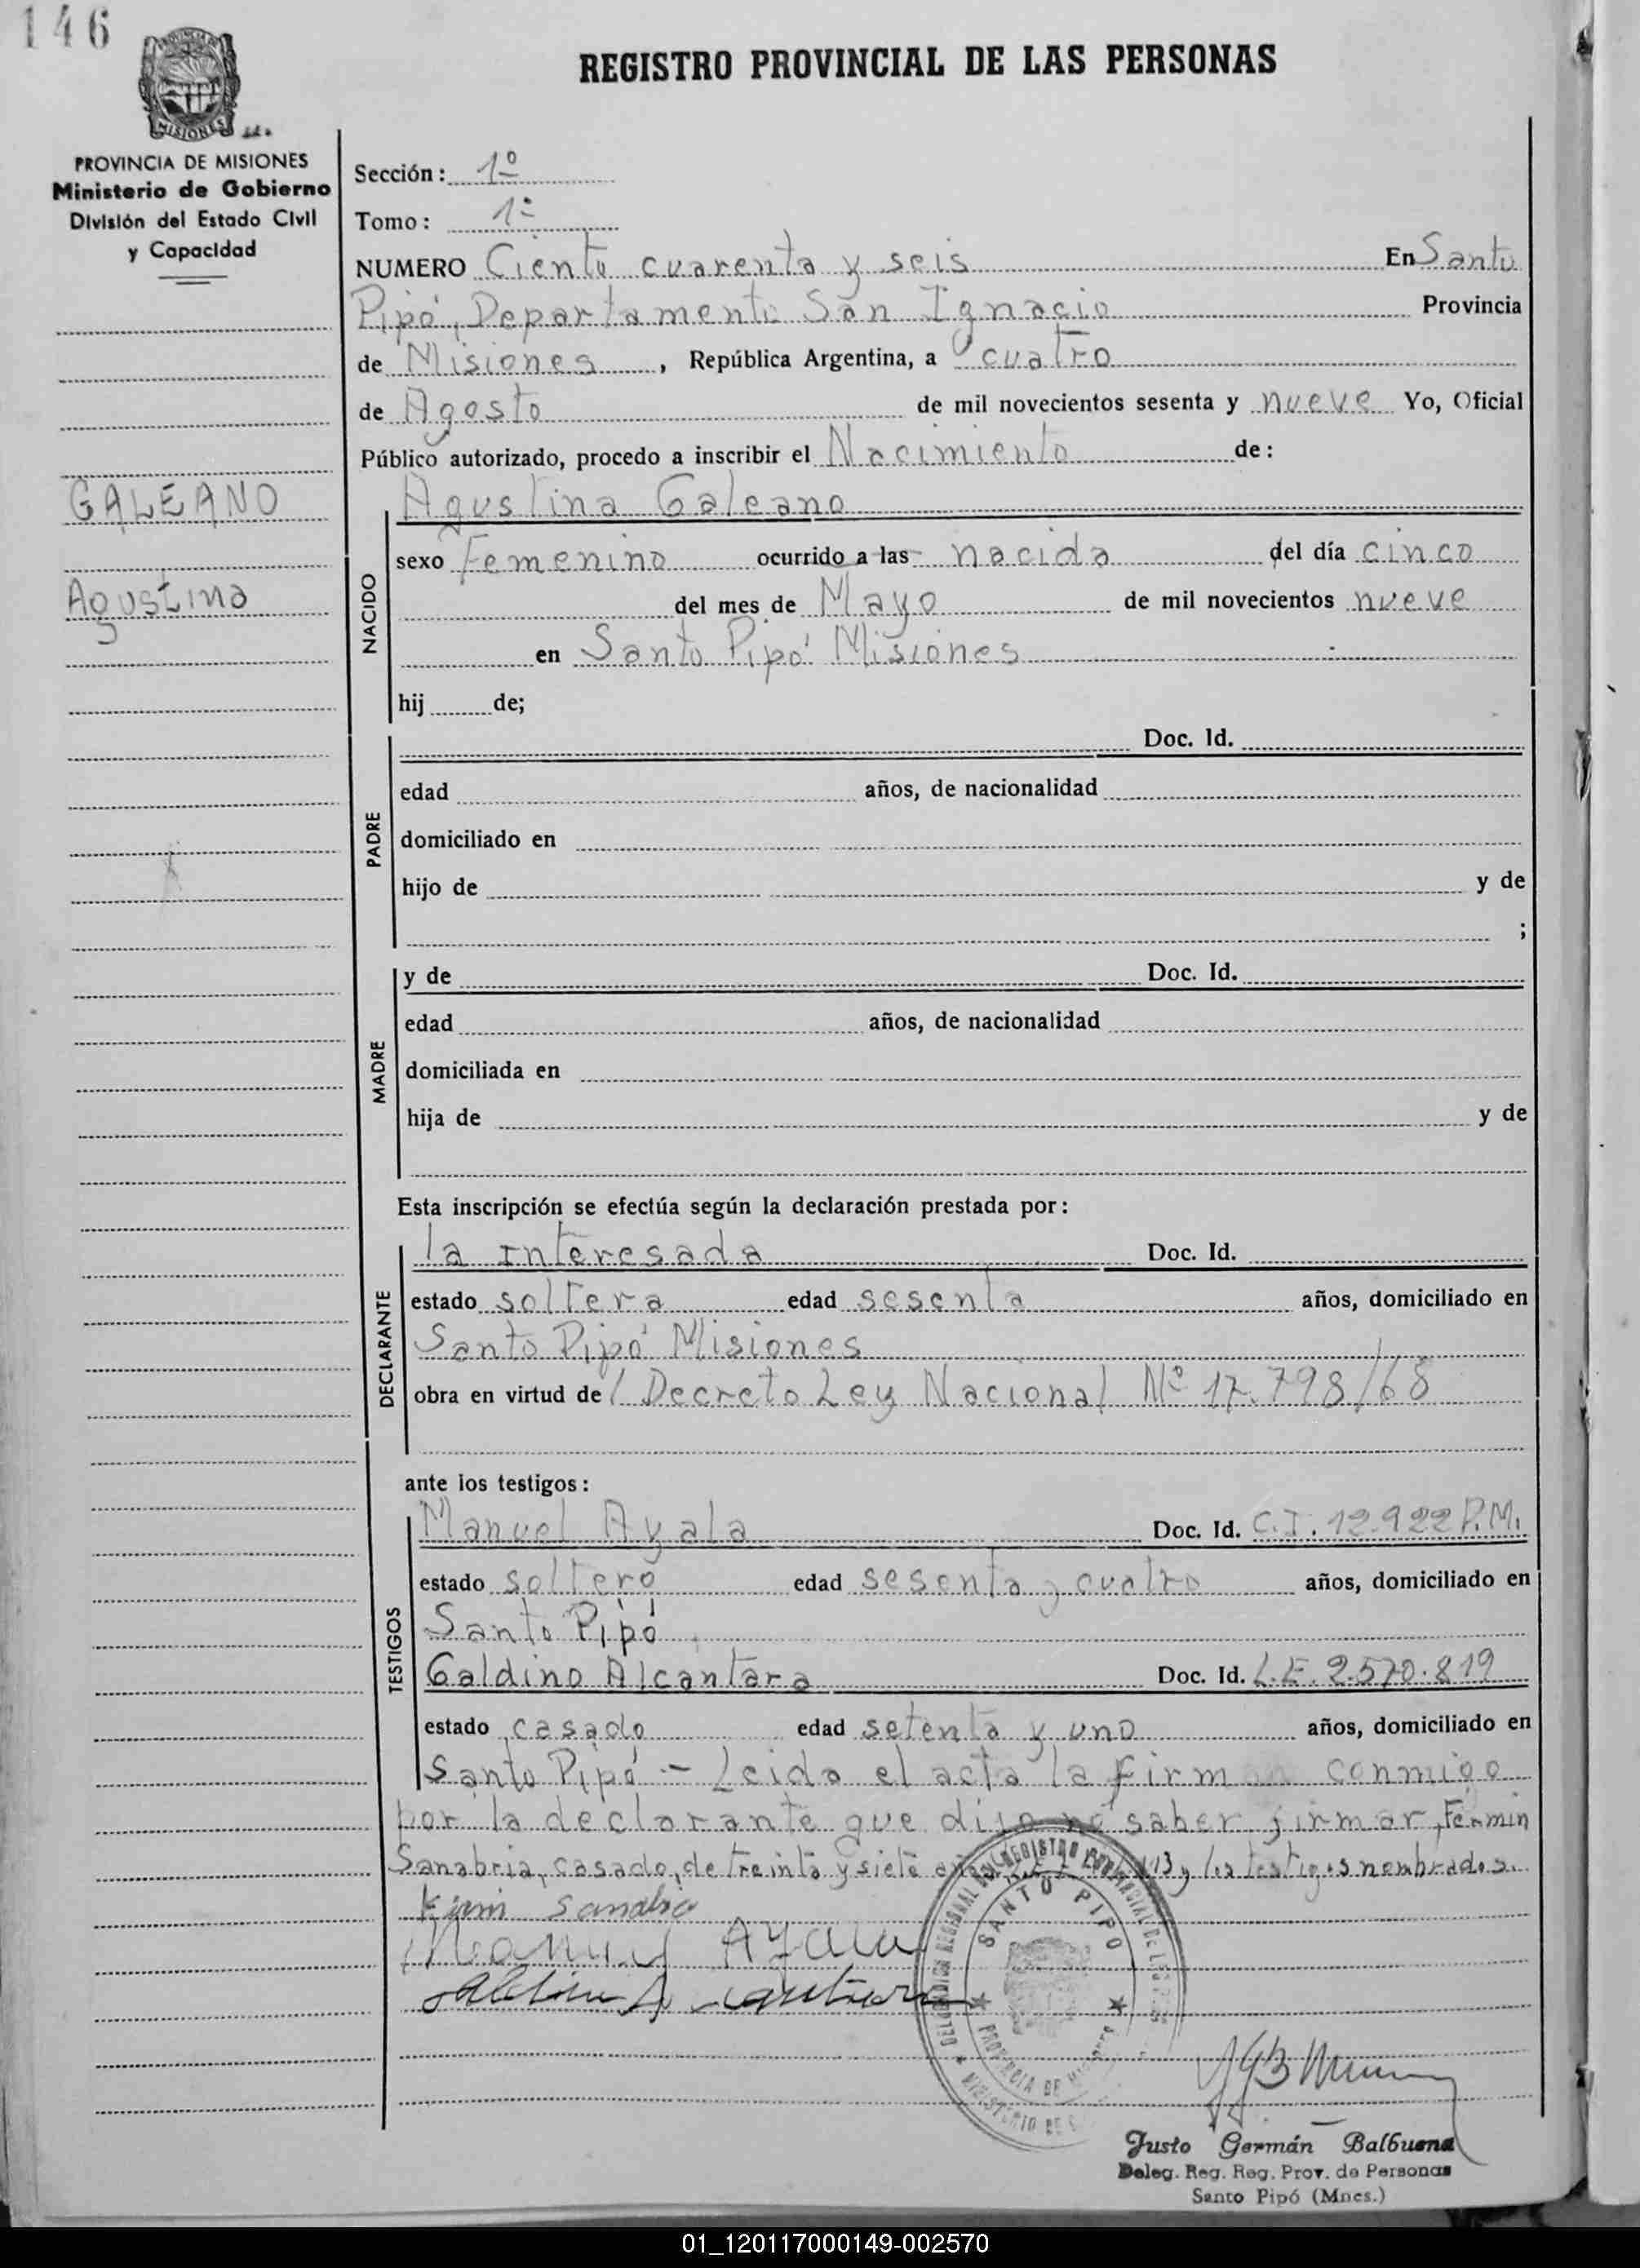 146
REGISTRO PROVINCIAL DE LAS PERSONAS
MISIONES
PROVINCIA DE MISIONES
Ministerio de Gobierno
División del Estado Civil
y Capacidad
GALEANO
Agustina
Sección: 1º
Tomo: 1º
NUMERO Ciento cuarenta y seis En Santo
Pipó, Departamento San Ignacio Provincia
de Misiones, República Argentina, a cuatro
de Agosto de mil novecientos sesenta y nueve Yo, Oficial
Público autorizado, procedo a inscribir el Nacimiento de:
Agustina Galeano
NACIDO
sexo Femenino ocurrido a las nacida del día cinco
del mes de Mayo de mil novecientos nueve
en Santo Pipó Misiones
hij de;
PADRE
Doc. Id.
edad años, de nacionalidad
domiciliado en
hijo de y de
;
MADRE
y de Doc. Id.
edad años, de nacionalidad
domiciliada en
hija de y de
Esta inscripción se efectúa según la declaración prestada por:
DECLARANTE
la interesada Doc. Id.
estado soltera edad sesenta años, domiciliado en
Santo Pipó Misiones
obra en virtud de Decreto Ley Nacional Nº 17.798/68
ante los testigos:
TESTIGOS
Manuel Ayala Doc. Id. C.I. 12.922 P.M.
estado soltero edad sesenta y cuatro años, domiciliado en
Santo Pipó
Galdino Alcantara Doc. Id. L.E. 2.570.819
estado casado edad setenta y uno años, domiciliado en
Santo Pipó - Leida el acta la firman conmigo
por la declarante que dijo no saber firmar, Fermin
Sanabria, casado, de treinta y siete y los testigos nombrados.
Sanabria
Manuel Ayala
SANTO PIPO
PROVINCIA DE MISIONES
Justo Germán Balbuena
Deleg. Reg. Reg. Prov. de Personas
Santo Pipó (Mnes.)
01_120117000149-002570